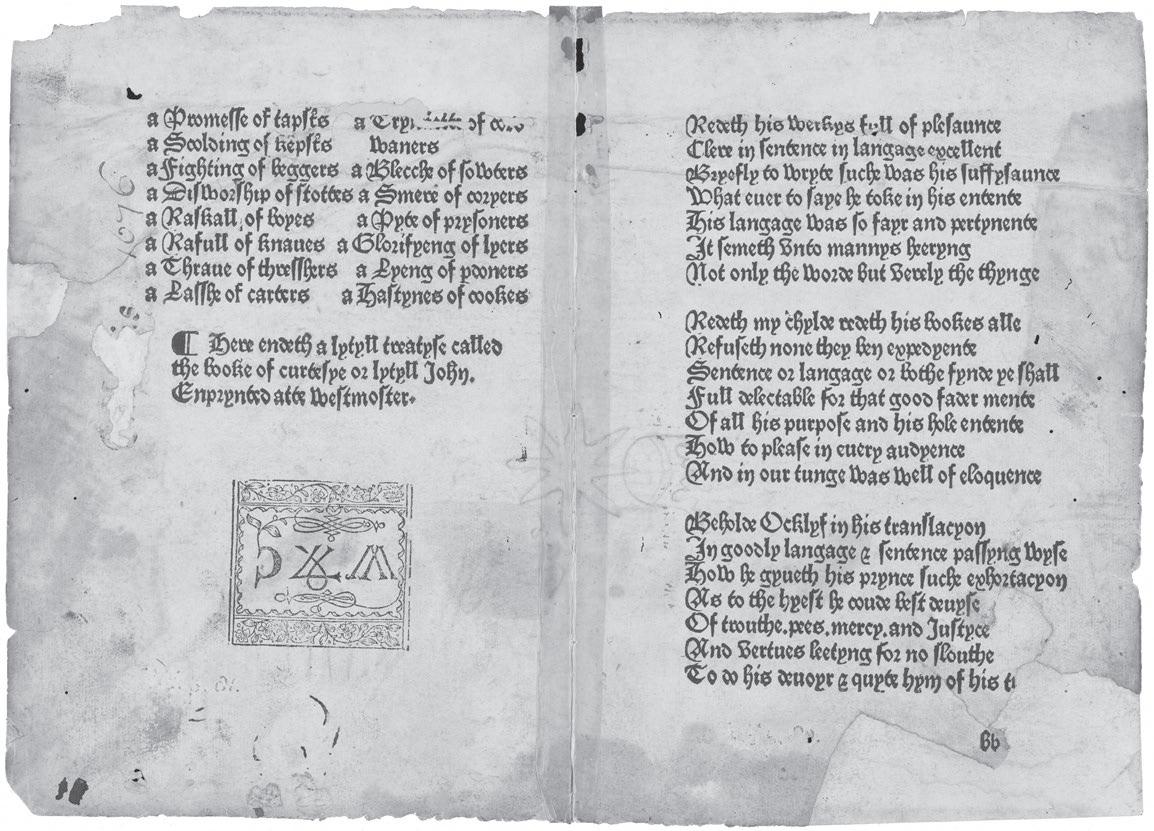 a Promesse of tapsts
a Scolding of kepsts
a Fighting of beggers
a Disworship of stottes
a Raskall of boyes
a Rafull of knaues
a Thraue of thresshers
a Lasshe of carters
a of
waners
a Blecche of sowters
a Smere of coryers
a Pyte of prysoners
a Gloryfyeng of lyers
a Lyeng of pdoners
a Hastynes of cookes
¶ Here endeth a lytyll treatyse called
the booke of curtesye or lytyll John.
Enprynted atte westmoster.
Redeth his werkys full of plesaunce
Clere in sentence in langage excellent
Bryefly to wryte suche was his suffysaunce
What euer to saye he toke in his entente
His langage was so fayr and pertynente
It semeth vnto mannys heeryng
Not only the worde but verely the thynge
Redeth my chylde redeth his bookes alle
Refuseth none they ben expedyente
Sentence or langage or bothe fynde ye shall
Full delectable for that good fader mente
Of all his purpose and his hole entente
How to please in euery audyence
And in our tunge was well of eloquence
Beholde Ocklyf in his translacyon
In goodly langage & sentence passyng wyse
How he gyueth his prynce suche exhortacyon
As to the hyest he coude best deuyse
Of trouthe.pees.mercy.and Justyce
And vertues leetyng for no slouthe
To do his deuoyr & quyte hym of his
Bb